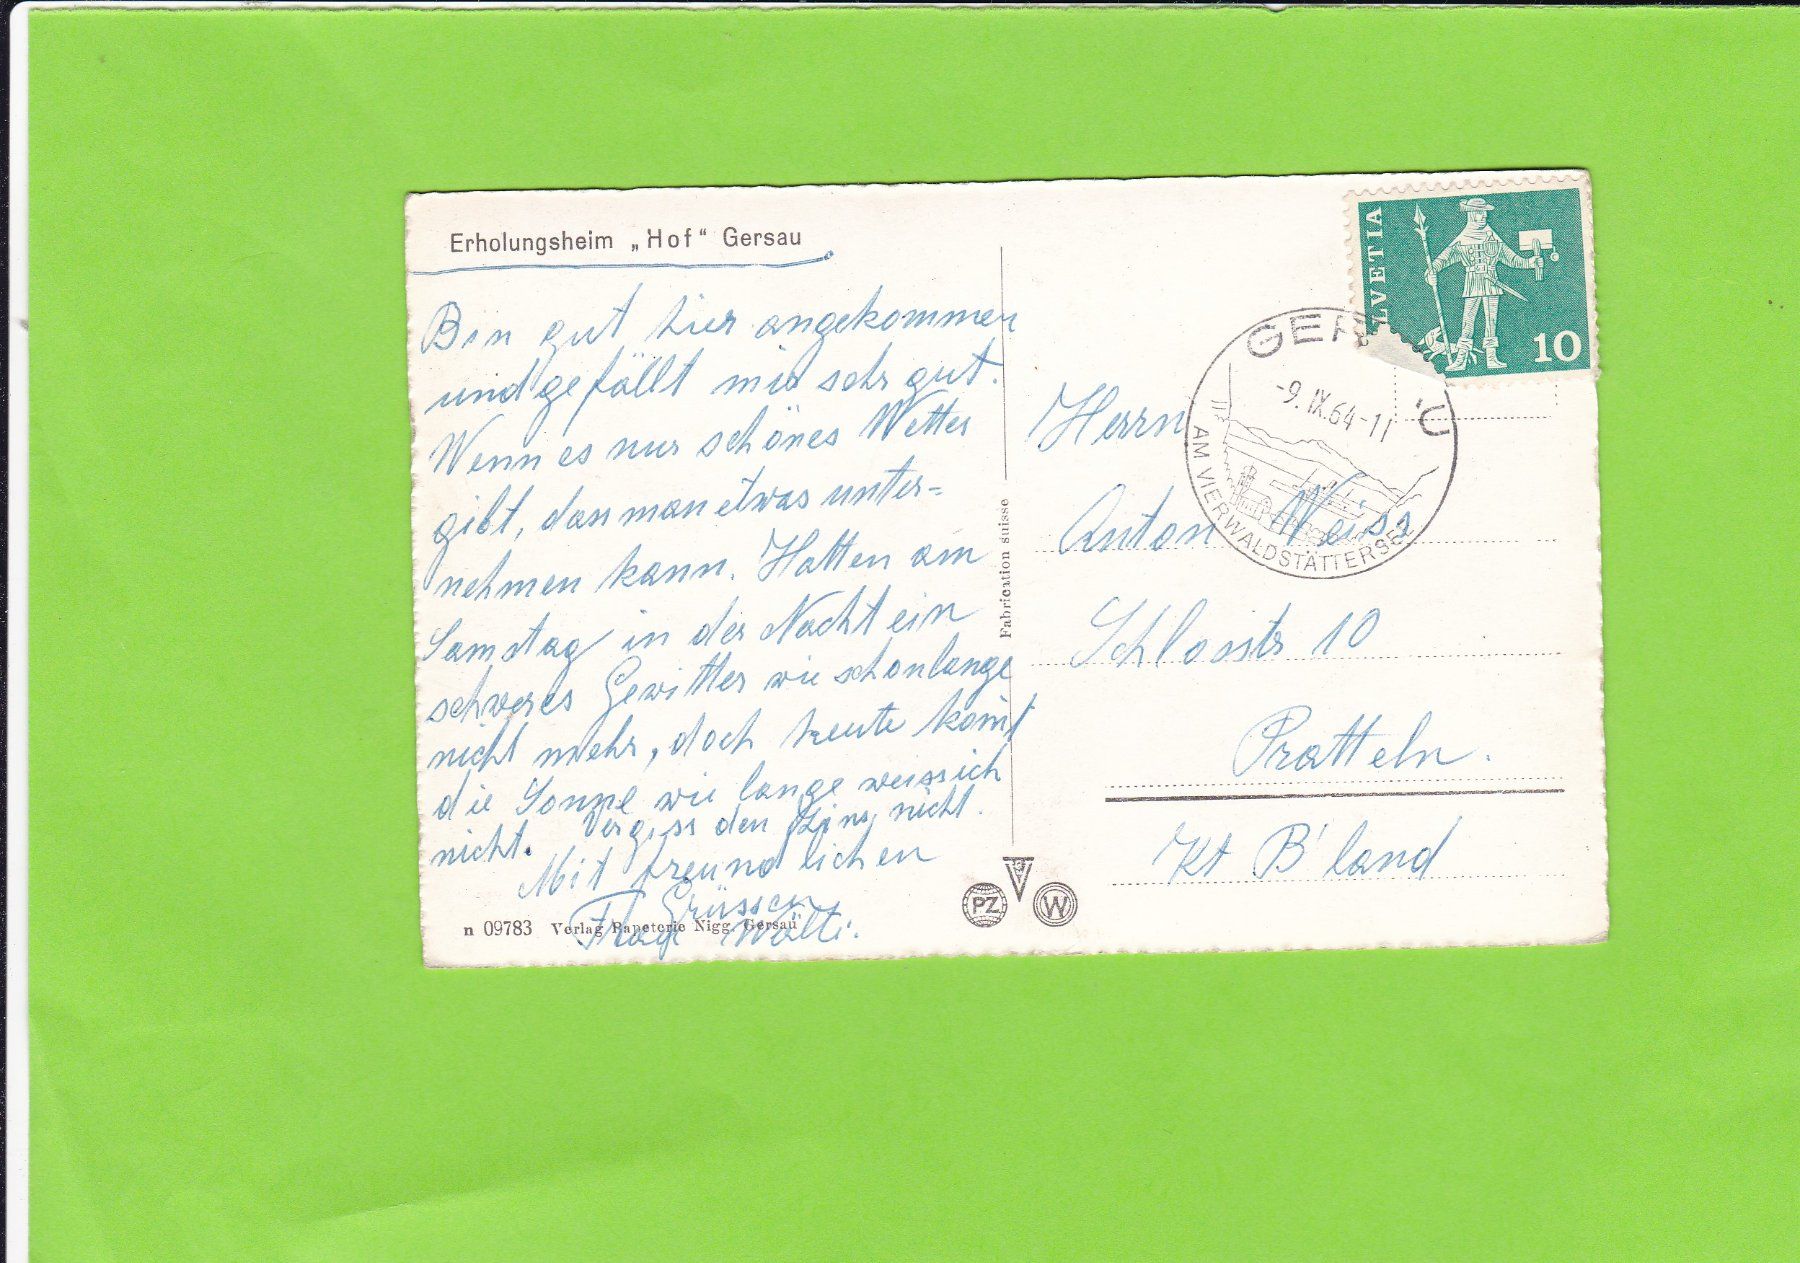 Erholungsheim „Hof“ Gersau
Bin gut hier angekommen
und gefällt mir sehr gut.
Wenn es nur schönes Wetter
gibt, dass man etwas unter=
nehmen kann. Hatten am
Samstag in der Nacht ein
schweres Gewitter wie schon lange
nicht mehr, doch heute komt
die Sonne wie lange weiss ich
nicht. Vergiss den Zins nicht.
Mit freundlichen
Grüssen
Frau Wälti.
n 09783 Verlag Papeterie Nigg. Gersau
Fabrication suisse
PZ
W
HELVETIA
10
GERSAU
-9.IX.64-11
AM VIERWALDSTÄTTERSEE
Herrn
Anton Weiss
Schlosstr 10
Pratteln.
Kt B'land